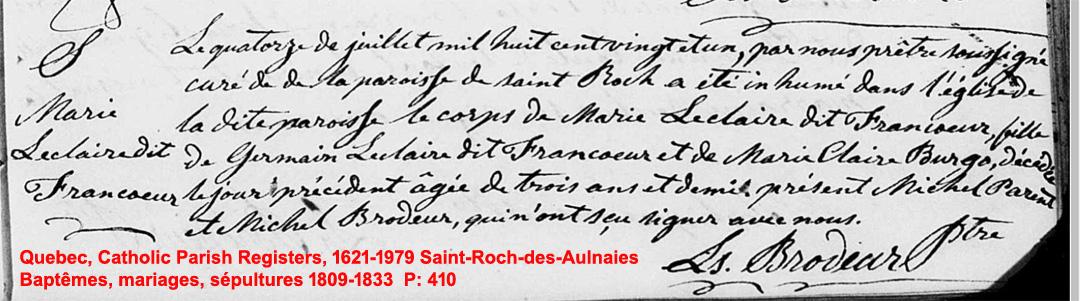 S
Marie
Leclaire dit
Francoeur
Le quatorze de juillet mil huit cent vingt et un, par nous prêtre soussigné
curé de de la paroisse de saint Roch a été inhumé dans l'église de
la dite paroisse le corps de Marie Leclaire dit Francoeur, fille
de Germain Leclaire dit Francoeur et de Marie Claire Burgo, décédée
le jour précédent âgée de trois ans et demie, présent Michel Parent
et Michel Brodeur, qui n'ont sçu signer avec nous.
Ls. Brodeur Ptre
Quebec, Catholic Parish Registers, 1621-1979 Saint-Roch-des-Aulnaies
Baptêmes, mariages, sépultures 1809-1833 P: 410